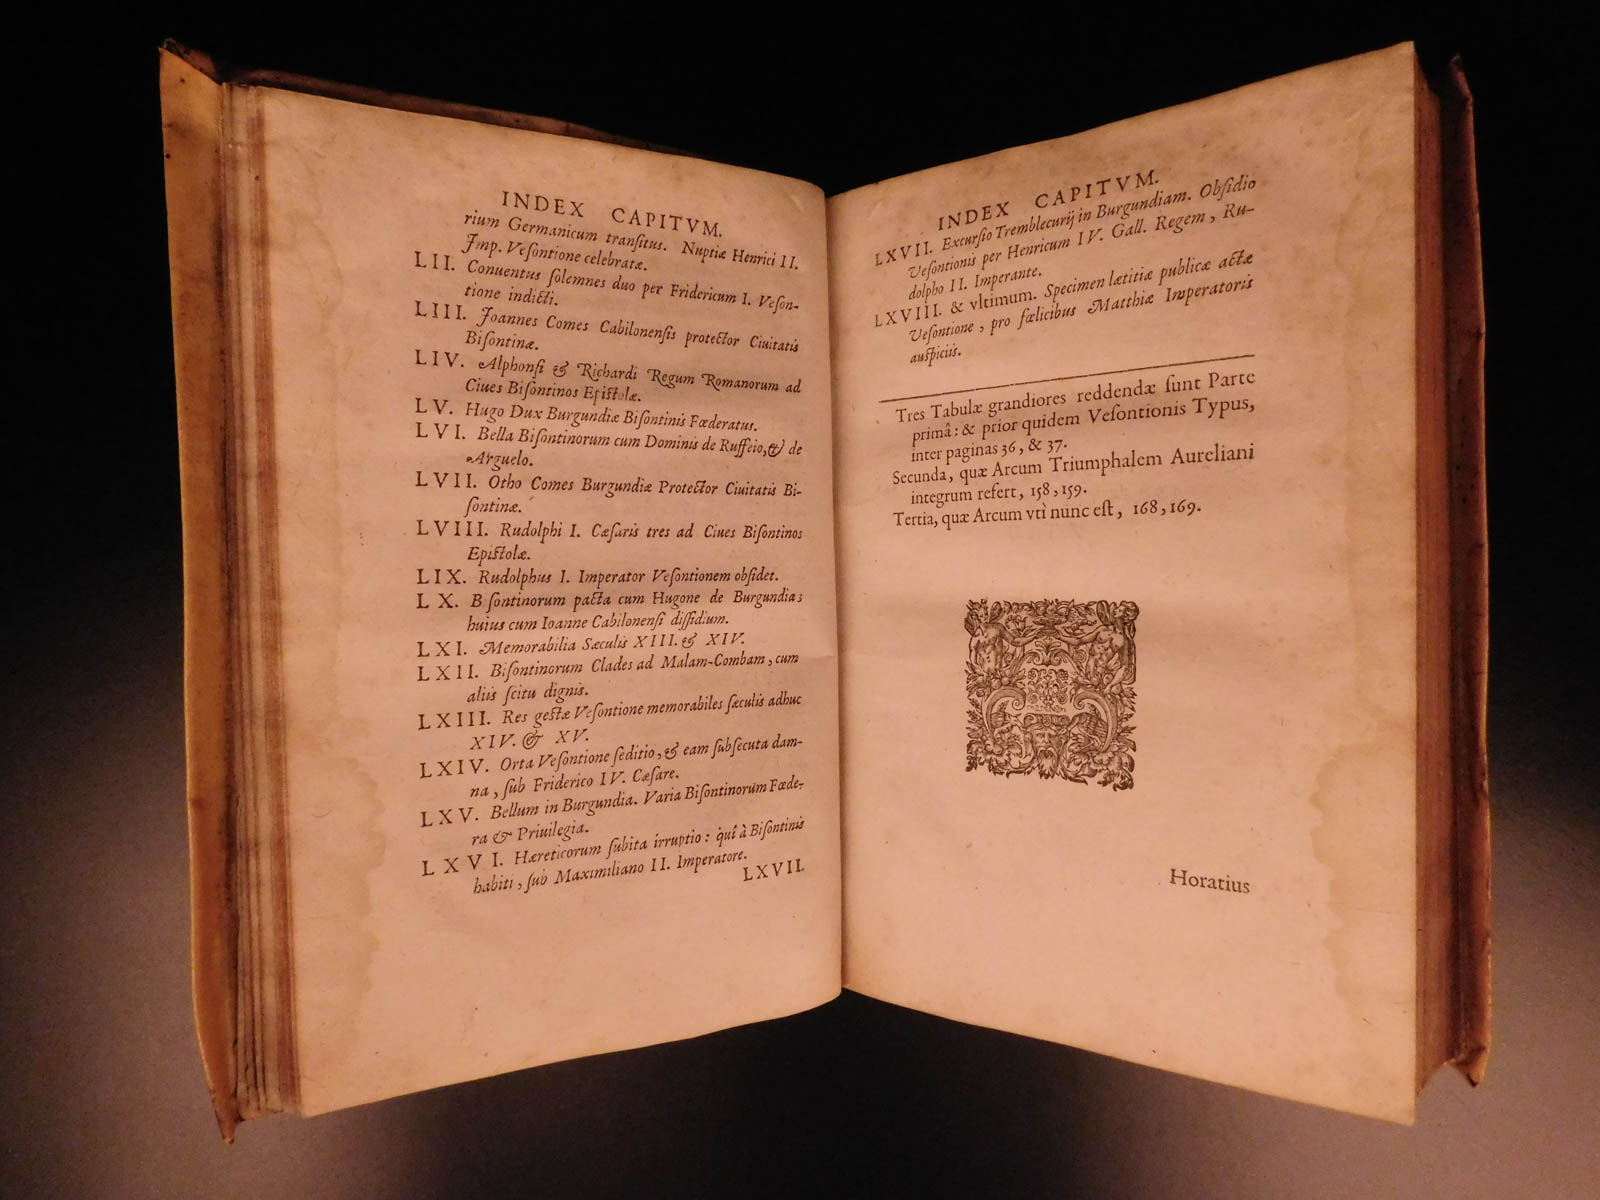 INDEX CAPITVM.
rium Germanicum transitus. Nuptiæ Henrici II.
Imp. Veſontione celebratæ.
LII. Conuentus ſolemnes duo per Fridericum I. Veſon-
tione indicti.
LIII. Joannes Comes Cabilonenſis protector Ciuitatis
Biſontinæ.
LIV. Alphonſi & Richardi Regum Romanorum ad
Ciues Biſontinos Epiſtolæ.
LV. Hugo Dux Burgundiæ Biſontinis Fœderatus.
LVI. Bella Biſontinorum cum Dominis de Ruffeio, & de
Arguelo.
LVII. Otho Comes Burgundiæ Protector Ciuitatis Bi-
ſontinæ.
LVIII. Rudolphi I. Cæſaris tres ad Ciues Biſontinos
Epiſtolæ.
LIX. Rudolphus I. Imperator Veſontionem obſidet.
LX. B ſontinorum pacta cum Hugone de Burgundia;
huius cum Ioanne Cabilonenſi diſſidium.
LXI. Memorabilia Sæculis XIII. & XIV.
LXII. Biſontinorum Clades ad Malam-Combam, cum
aliis ſcitu dignis.
LXIII. Res geſtæ Veſontione memorabiles ſæculis adhuc
XIV. & XV.
LXIV. Orta Veſontione ſeditio, & eam ſubſecuta dam-
na, ſub Friderico IV. Cæſare.
LXV. Bellum in Burgundia. Varia Biſontinorum Fœde-
ra & Priuilegia.
LXVI. Hæreticorum ſubita irruptio: quî à Biſontinis
habiti, ſub Maximiliano II. Imperatore.
LXVII.
INDEX CAPITVM.
LXVII. Excurſio Tremblecurij in Burgundiam. Obſidio
Veſontionis per Henricum IV. Gall. Regem, Ru-
dolpho II. Imperante.
LXVIII. & vltimum. Specimen lætitiæ publicæ actæ
Veſontione, pro fœlicibus Matthiæ Imperatoris
auſpiciis.
Tres Tabulæ grandiores reddendæ ſunt Parte
primâ: & prior quidem Veſontionis Typus,
inter paginas 36, & 37.
Secunda, quæ Arcum Triumphalem Aureliani
integrum refert, 158, 159.
Tertia, quæ Arcum vtì nunc eſt, 168, 169.
Horatius